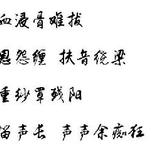 血浸骨难拔
恩怨缠 扶音绕梁
重纱罩残阳
留声长 声声余痴狂